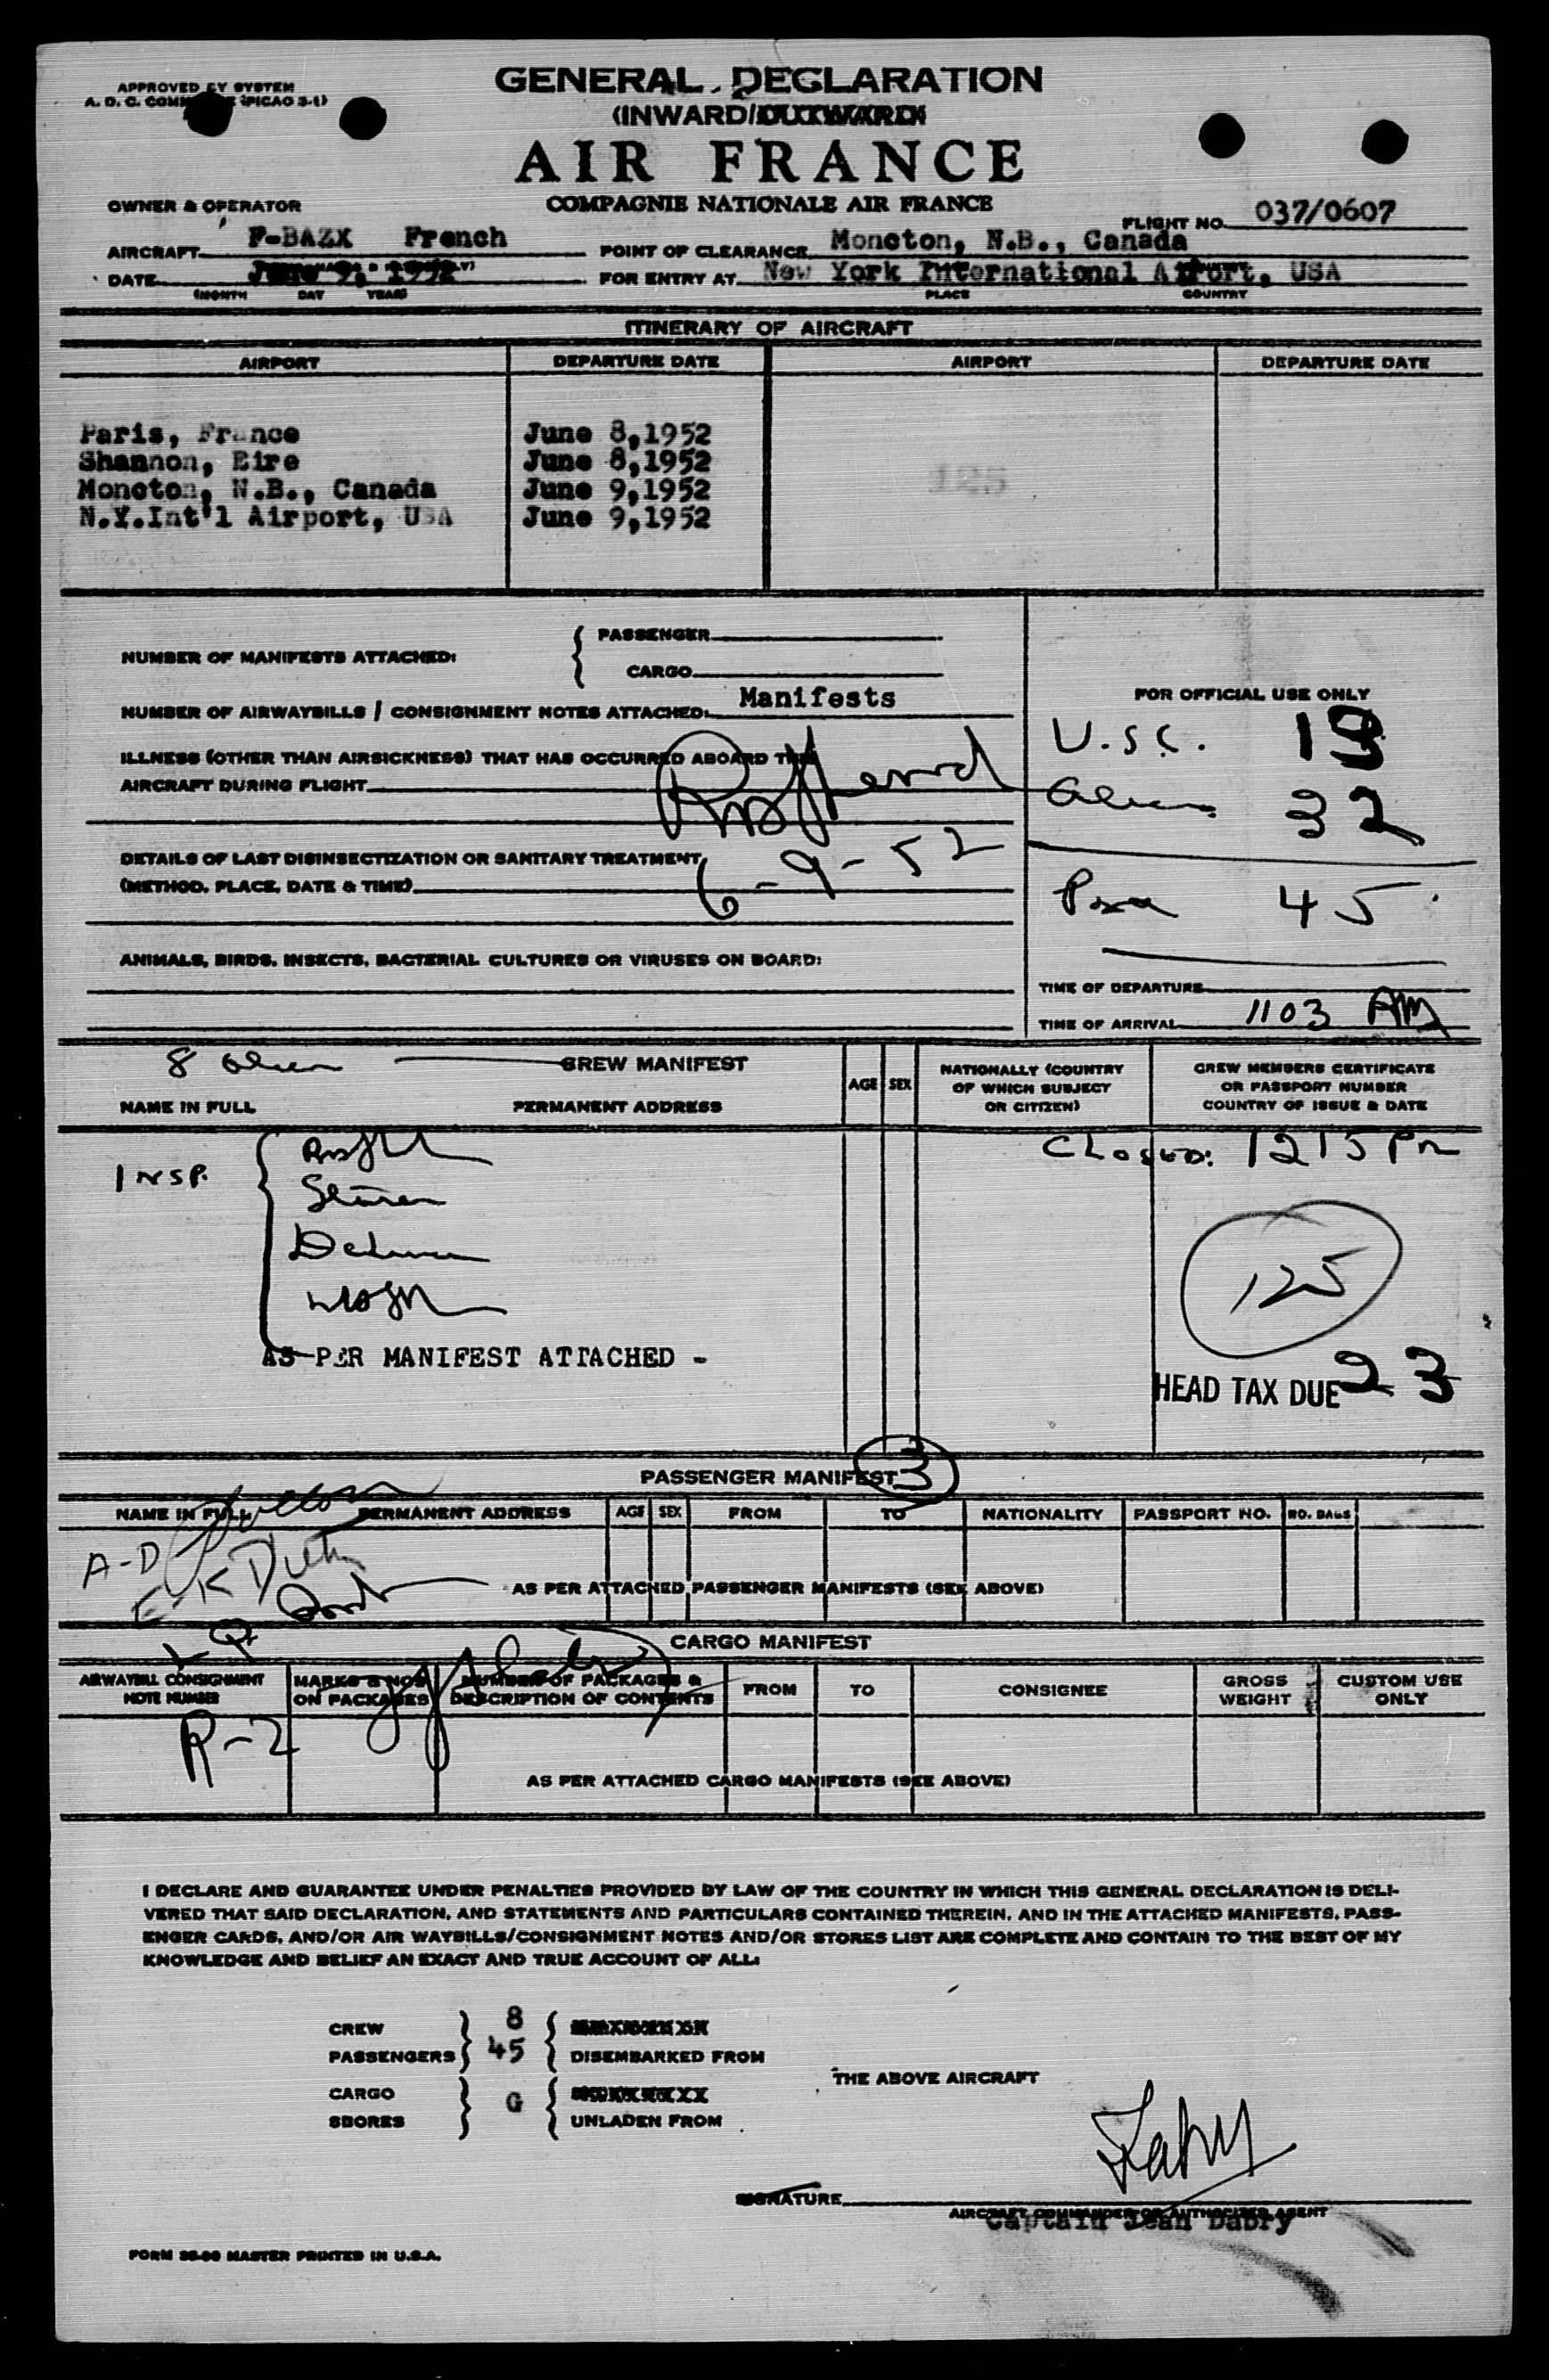 APPROVED BY SYSTEM
A. O. C. (PICAO 3-1)
GENERAL DECLARATION
(INWARD/OUTWARD)
AIR FRANCE
COMPAGNIE NATIONALE AIR FRANCE
OWNER & OPERATOR
FLIGHT NO. 037/0607
AIRCRAFT F-BAZX French
POINT OF CLEARANCE Moncton, N.B., Canada
DATE June 9, 1952
FOR ENTRY AT New York International Airport, USA
(MONTH DAY YEAR)
PLACE COUNTRY
ITINERARY OF AIRCRAFT
AIRPORT DEPARTURE DATE AIRPORT DEPARTURE DATE
Paris, France June 8,1952
Shannon, Eire June 8,1952
Moncton, N.B., Canada June 9,1952
N.Y.Int'l Airport, USA June 9,1952
NUMBER OF MANIFESTS ATTACHED:
PASSENGER
CARGO
NUMBER OF AIRWAYBILLS / CONSIGNMENT NOTES ATTACHED: Manifests
ILLNESS (OTHER THAN AIRSICKNESS) THAT HAS OCCURRED ABOARD THE
AIRCRAFT DURING FLIGHT
DETAILS OF LAST DISINSECTIZATION OR SANITARY TREATMENT
6-9-52
(METHOD, PLACE, DATE & TIME)
ANIMALS, BIRDS, INSECTS, BACTERIAL CULTURES OR VIRUSES ON BOARD:
FOR OFFICIAL USE ONLY
U.S.C. 13
Aliens 32
Pax 45
TIME OF DEPARTURE
TIME OF ARRIVAL 1103 AM
8 Alien
CREW MANIFEST
NAME IN FULL PERMANENT ADDRESS
AGE SEX
NATIONALLY (COUNTRY
OF WHICH SUBJECT
OR CITIZEN)
CREW MEMBERS CERTIFICATE
OR PASSPORT NUMBER
COUNTRY OF ISSUE & DATE
Closed: 1215 Pm
INSP.
125
AS PER MANIFEST ATTACHED -
HEAD TAX DUE 23
PASSENGER MANIFEST 3
NAME IN FULL PERMANENT ADDRESS AGE SEX FROM TO NATIONALITY PASSPORT NO. NO. BAGS
A-D
E-K
AS PER ATTACHED PASSENGER MANIFESTS (SEE ABOVE)
CARGO MANIFEST
AIRWAYBILL CONSIGNMENT
NOTE NUMBER
MARKS & NOS
ON PACKAGES
NUMBER OF PACKAGES &
DESCRIPTION OF CONTENTS
FROM TO CONSIGNEE
GROSS
WEIGHT
CUSTOM USE
ONLY
R-Z
AS PER ATTACHED CARGO MANIFESTS (SEE ABOVE)
I DECLARE AND GUARANTEE UNDER PENALTIES PROVIDED BY LAW OF THE COUNTRY IN WHICH THIS GENERAL DECLARATION IS DELI-
VERED THAT SAID DECLARATION, AND STATEMENTS AND PARTICULARS CONTAINED THEREIN, AND IN THE ATTACHED MANIFESTS, PASS-
ENGER CARDS, AND/OR AIR WAYBILLS/CONSIGNMENT NOTES AND/OR STORES LIST ARE COMPLETE AND CONTAIN TO THE BEST OF MY
KNOWLEDGE AND BELIEF AN EXACT AND TRUE ACCOUNT OF ALL:
CREW 8
PASSENGERS 45 DISEMBARKED FROM
THE ABOVE AIRCRAFT
CARGO G
SBORES UNLADEN FROM
Dabry
SIGNATURE
AIRCRAFT COMMANDER OR AUTHORIZED AGENT
Captain Jean Dabry
FORM 35-00 MASTER PRINTED IN U.S.A.